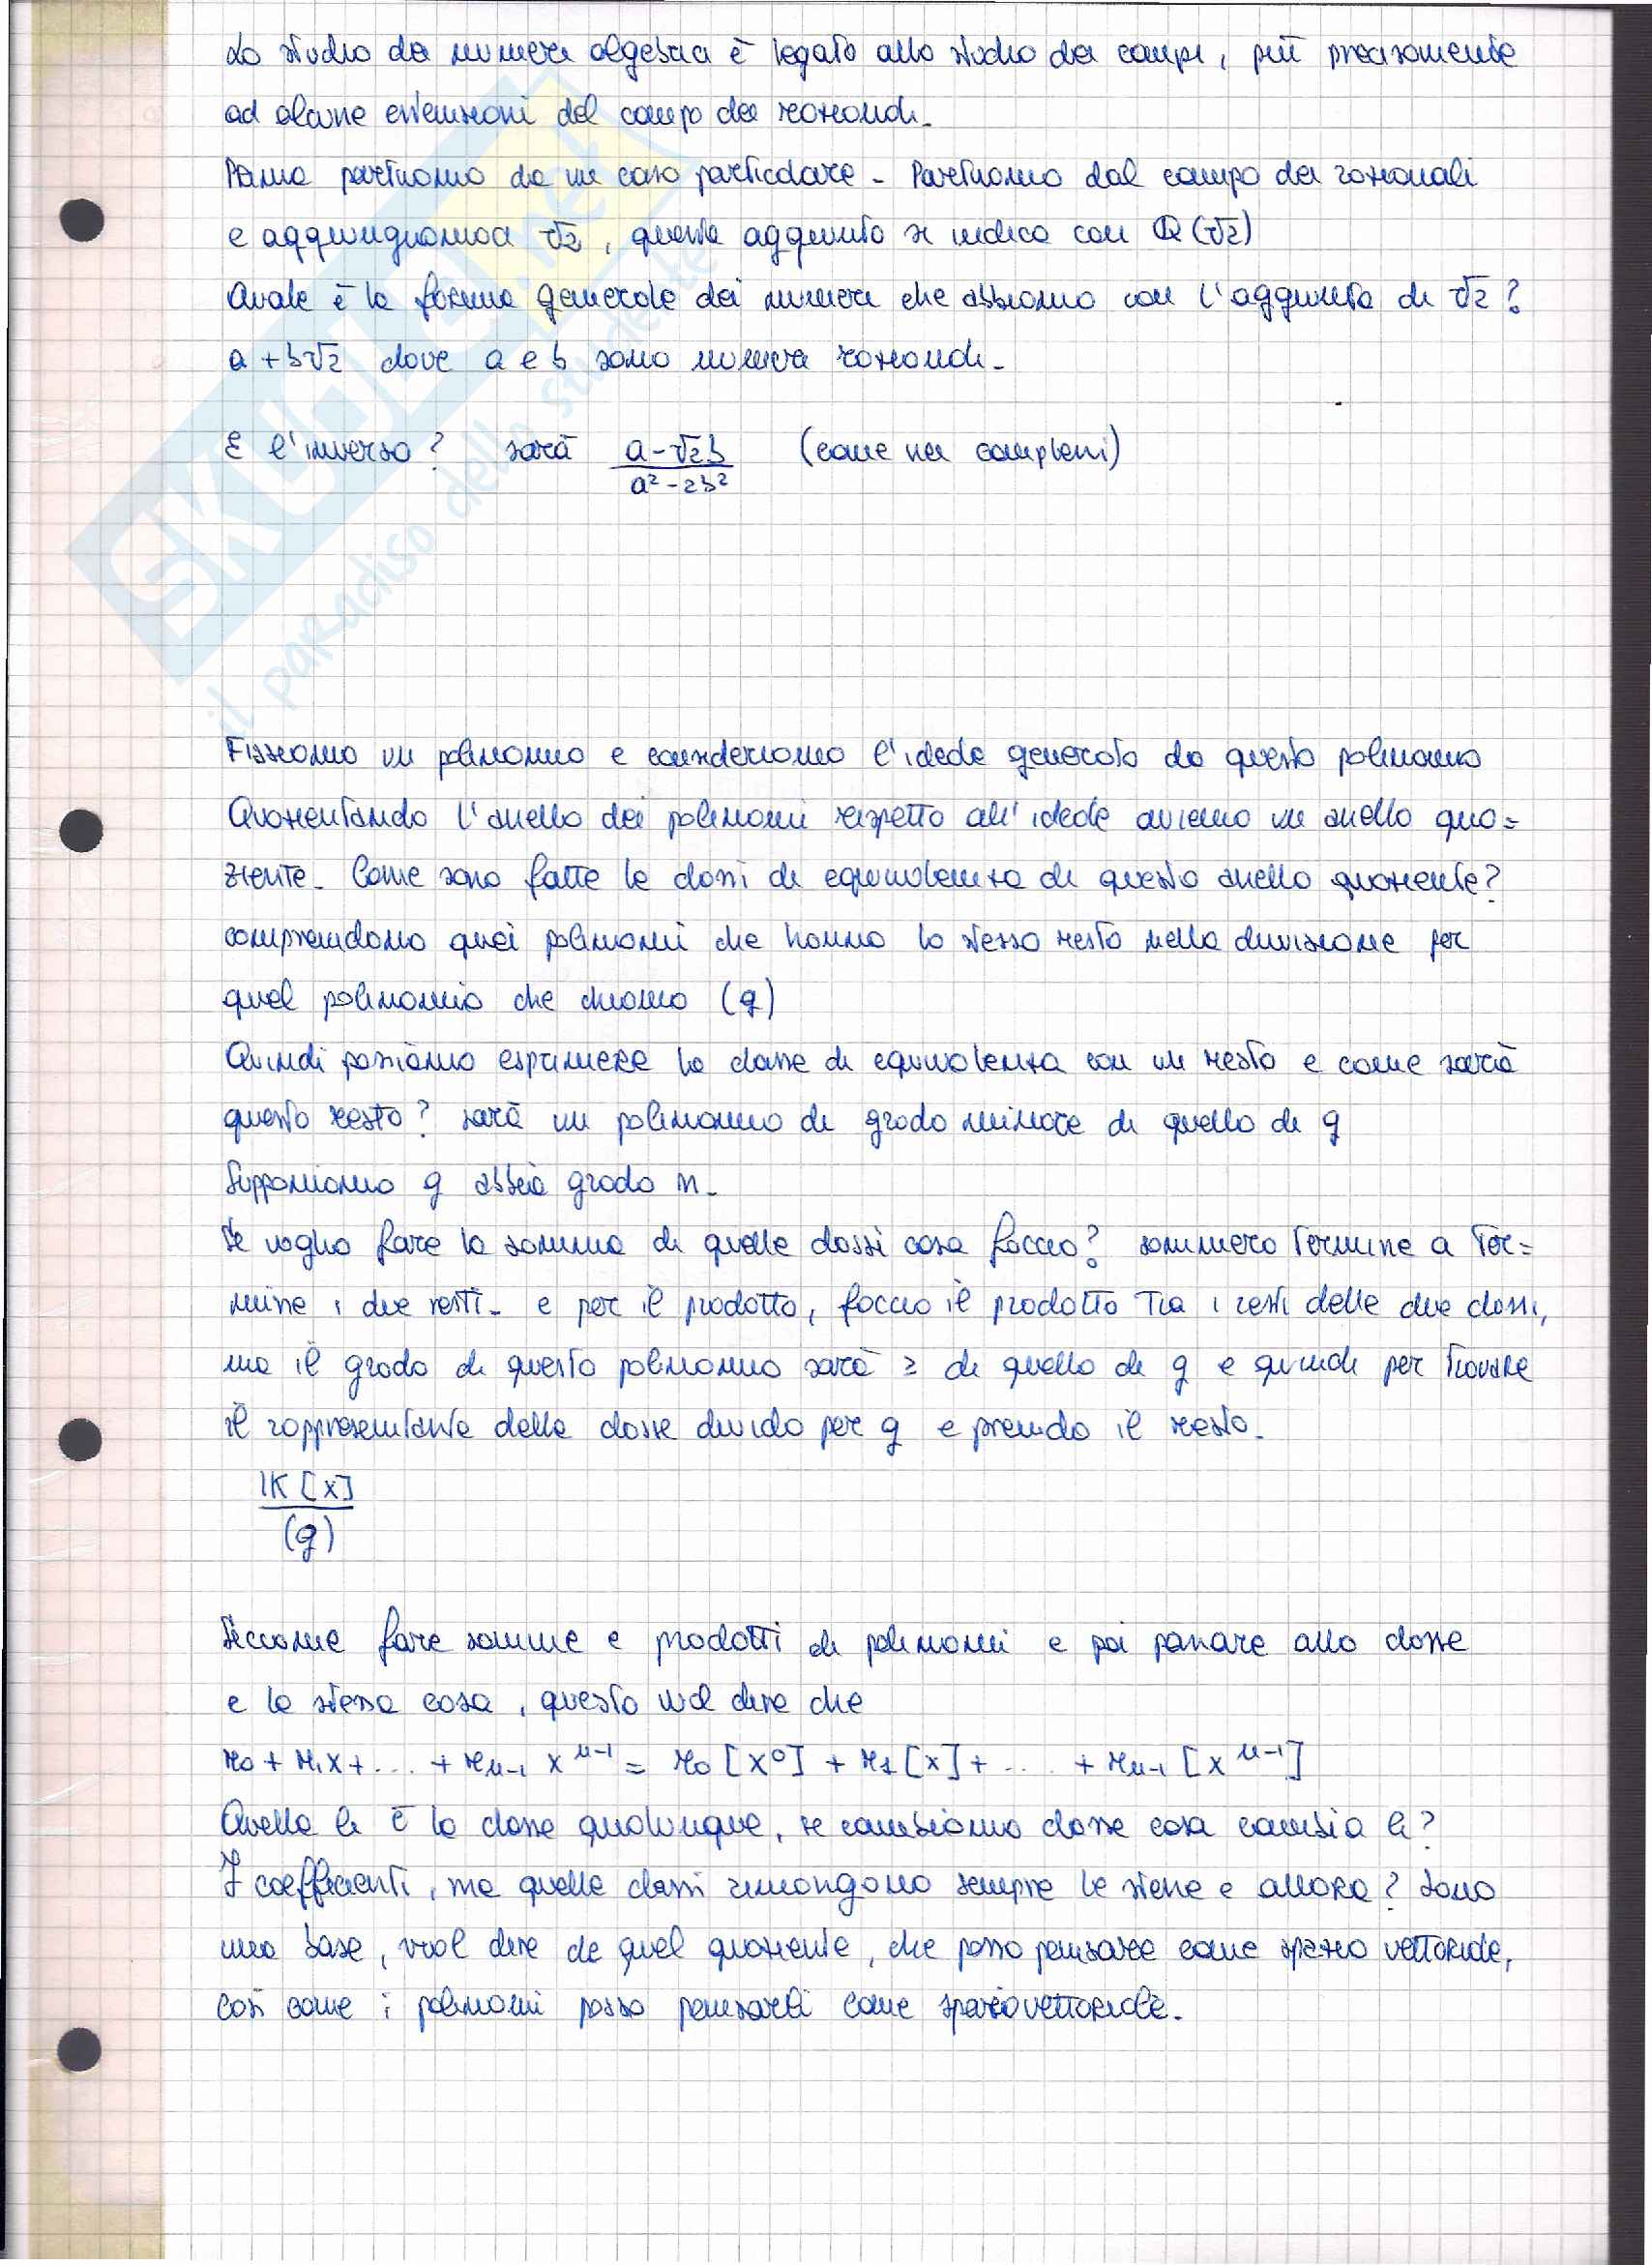 Lo studio dei numeri algebrici è legato allo studio dei campi, più precisamente
ad alcune estensioni del campo dei razionali.
Prima partiamo da un caso particolare - Partiamo dal campo dei razionali
e aggiungiamoci √2, questa aggiunta si indica con Q(√2)
Quale è la forma generale dei numeri che abbiamo con l'aggiunta di √2?
a + b√2 dove a e b sono numeri razionali.
E l'inverso? sarà (a-√2b)/(a²-2b²) (come nei complessi)
Fissiamo un polinomio e consideriamo l'ideale generato da questo polinomio
Quozientando l'anello dei polinomi rispetto all'ideale avremo un anello quo=
ziente. Come sono fatte le classi di equivalenza di questo anello quoziente?
comprendono quei polinomi che hanno lo stesso resto nella divisione per
quel polinomio che chiamo (g)
Quindi possiamo esprimere la classe di equivalenza con un resto e come sarà
questo resto? sarà un polinomio di grado minore di quello di g
Supponiamo g abbia grado n.
Se voglio fare la somma di quelle classi cosa faccio? sommerò termine a ter=
mine i due resti. e per il prodotto, faccio il prodotto tra i resti delle due classi,
ma il grado di questo polinomio sarà ≥ di quello di g e quindi per trovare
il rappresentante della classe divido per g e prendo il resto.
IK[x]
(g)
Siccome fare somme e prodotti di polinomi e poi passare alla classe
e la stessa cosa, questo vuol dire che
r₀ + r₁x + ... + rₙ₋₁ xⁿ⁻¹ = r₀[x⁰] + r₁[x] + .... + rₙ₋₁[xⁿ⁻¹]
Quella lì è la classe qualunque, se cambiamo classe cosa cambia lì?
I coefficienti, ma quelle classi rimangono sempre le stesse e allora? Sono
una base, vuol dire di quel quoziente, che posso pensare come spazio vettoriale,
così come i polinomi posso pensarli come spazio vettoriale.
SKUOLA.net
il paradiso dello studente